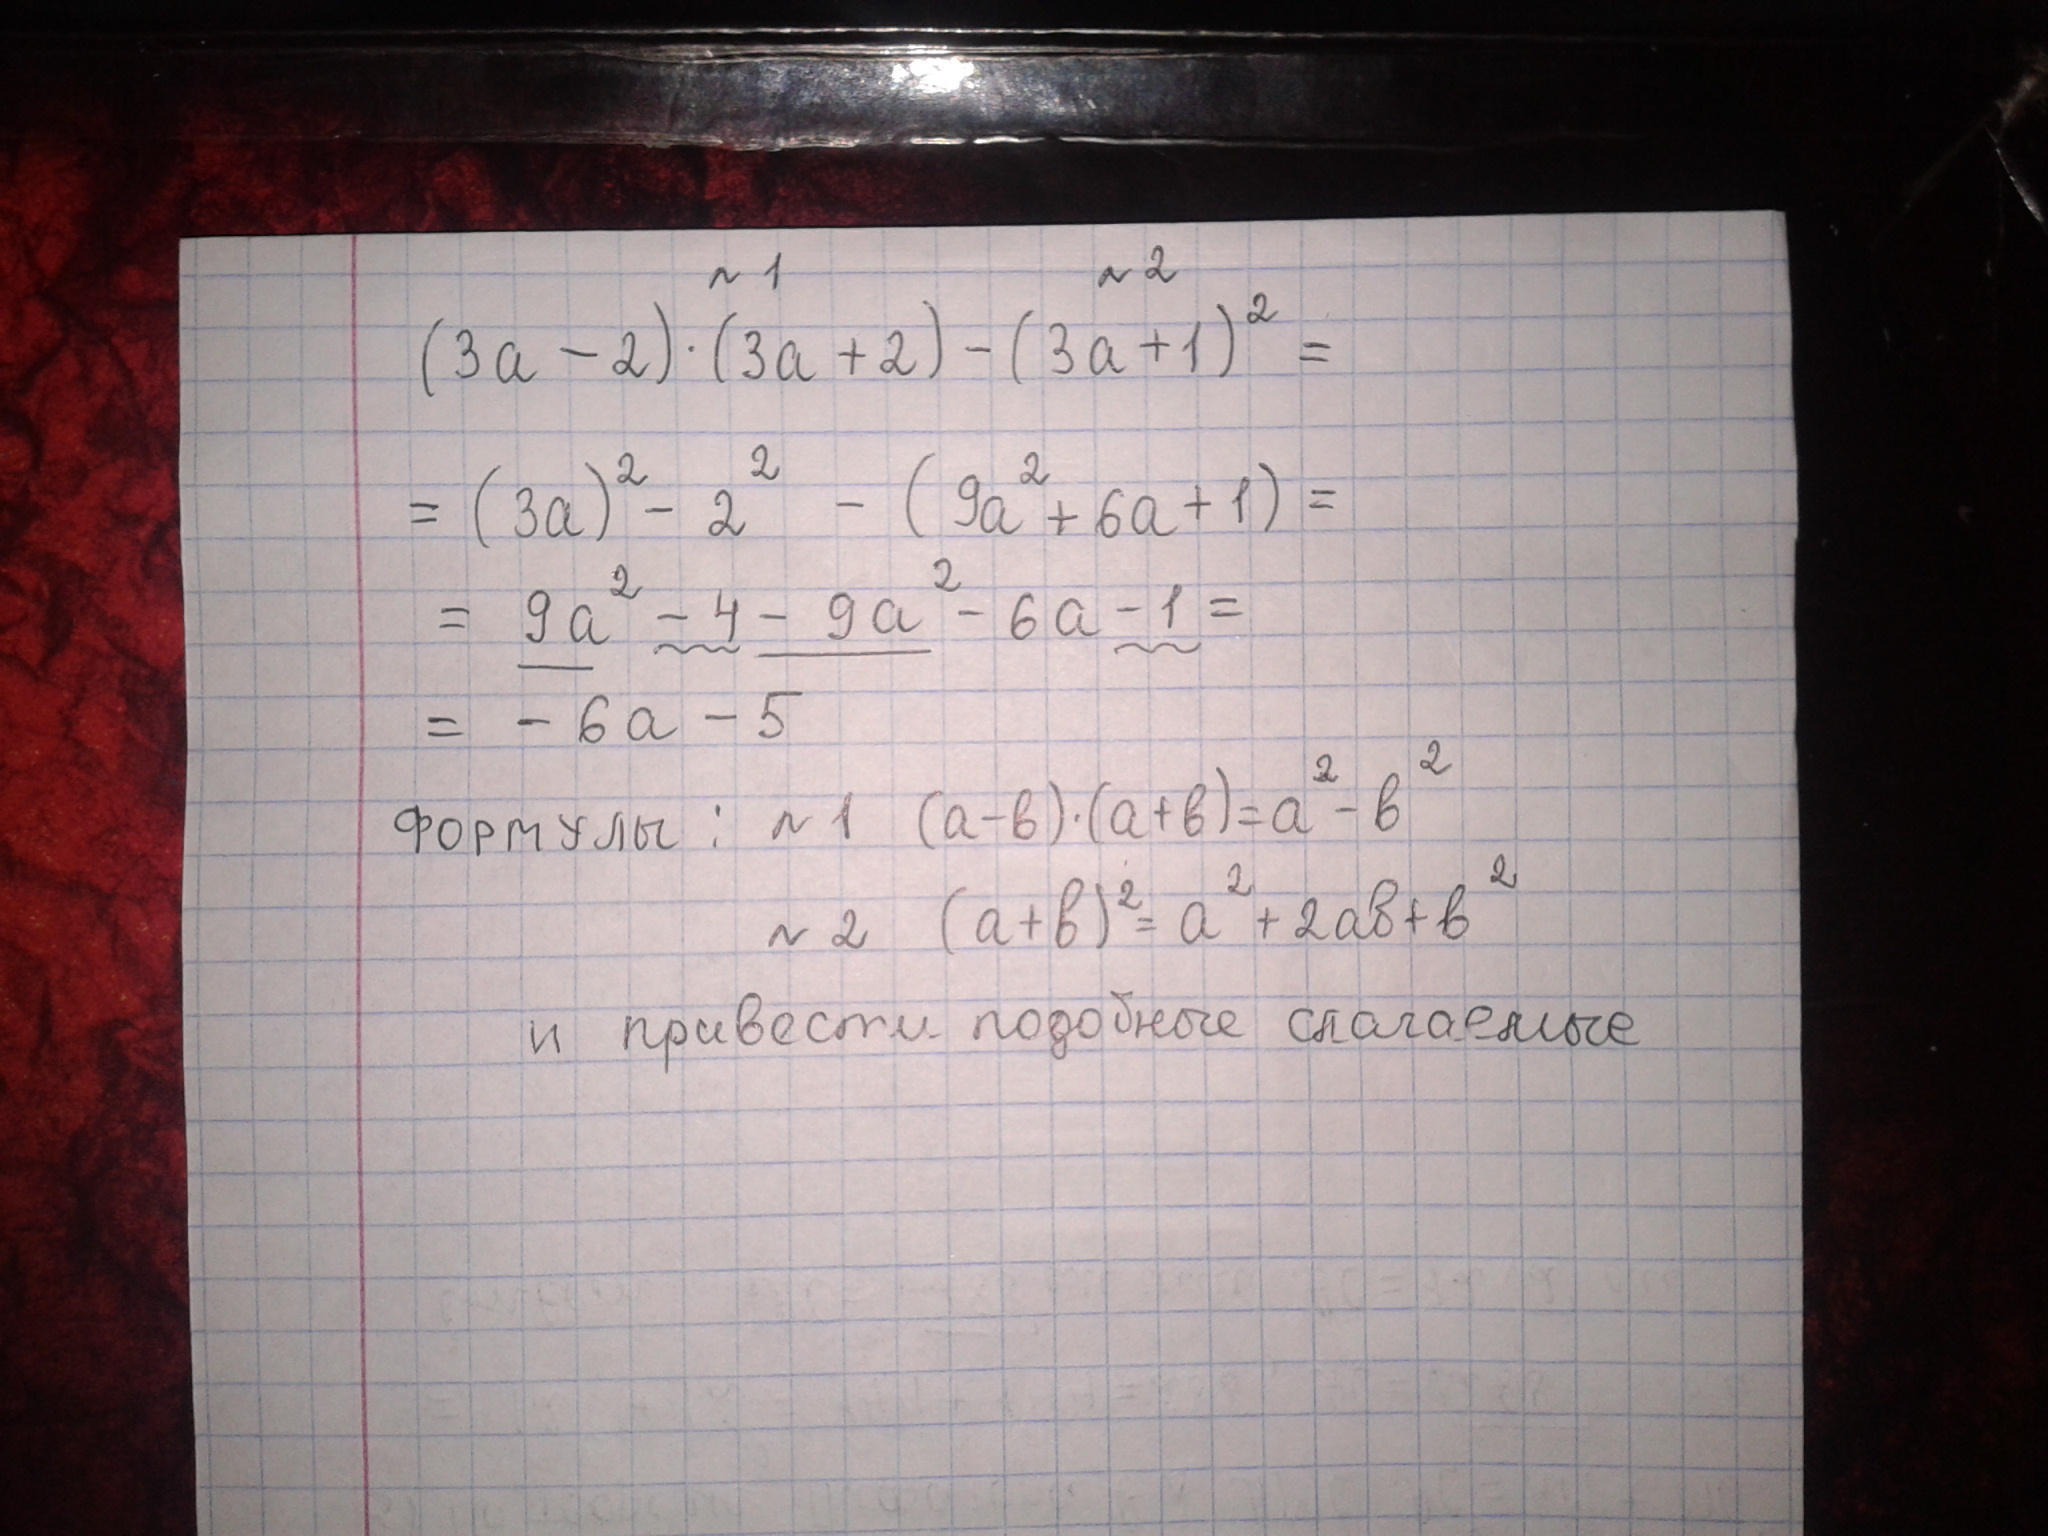 ~1 ~2
(3a - 2)·(3a + 2) - (3a + 1)² =
= (3a)² - 2² - (9a² + 6a + 1) =
= 9a² - 4 - 9a² - 6a - 1 =
= - 6a - 5
формулы: ~1 (a-в)·(a+в)=a²-в²
~2 (a+в)²= a²+2aв+в²
и привести подобные слагаемые